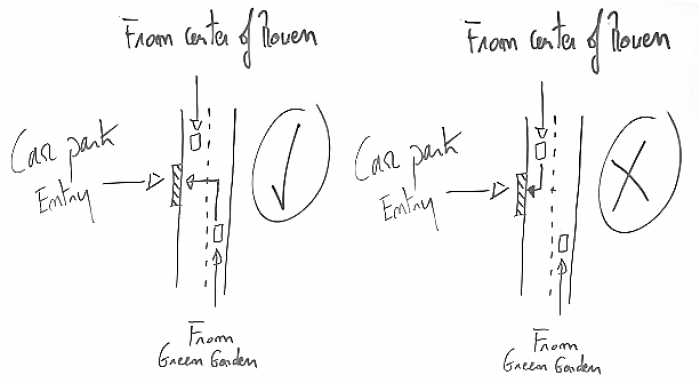 From center of Rouen
Car park
Entry
From
Green Garden
From center of Rouen
Car park
Entry
From
Green Garden